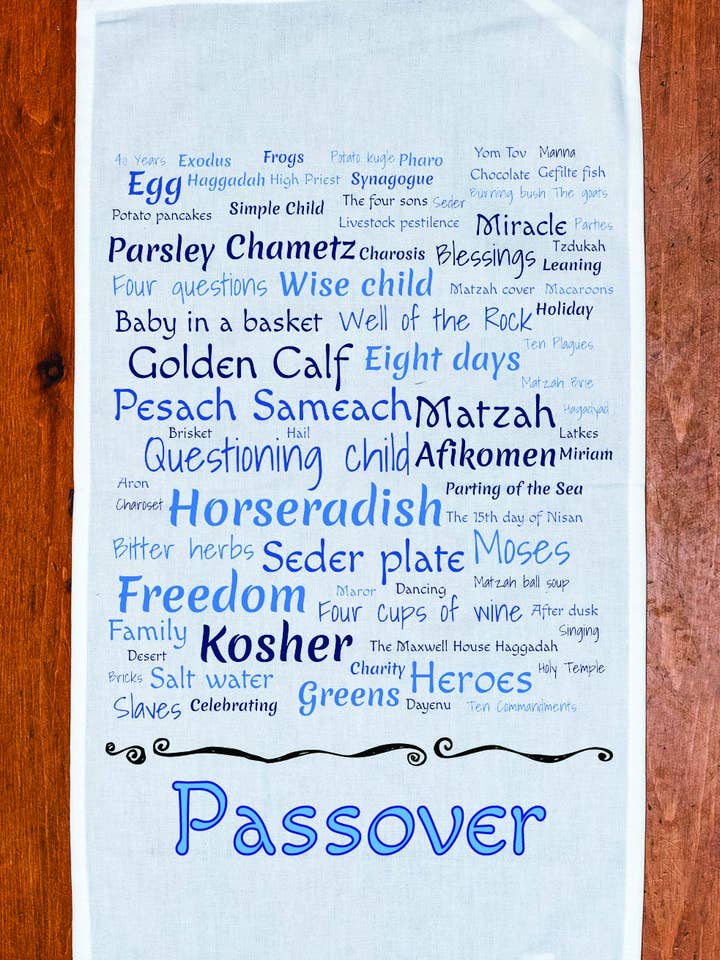 40 Years Exodus Frogs Potato kugle Pharo Yom Tov Manna
Egg Haggadah High Priest Synagogue Chocolate Gefilte fish
Burning bush The goats
Potato pancakes Simple Child The four sons Seder
Livestock pestilence Miracle Parties
Parsley Chametz Charosis Blessings Tzdukah
Leaning
Four questions Wise child Matzah cover Macaroons
Baby in a basket Well of the Rock Holiday
Golden Calf Eight days Ten Plagues
Matzah Brie
Pesach Sameach Matzah Hagadyad
Brisket Hail Latkes
Questioning child Afikomen Miriam
Aron Parting of the Sea
Charoset Horseradish The 15th day of Nisan
Bitter herbs Seder plate Moses
Freedom Maror Dancing Matzah ball soup
Four cups of wine After dusk
Family Kosher The Maxwell House Haggadah Singing
Desert Charity Heroes Holy Temple
Bricks Salt water
Slaves Celebrating Greens Dayenu Ten Commandments
Passover